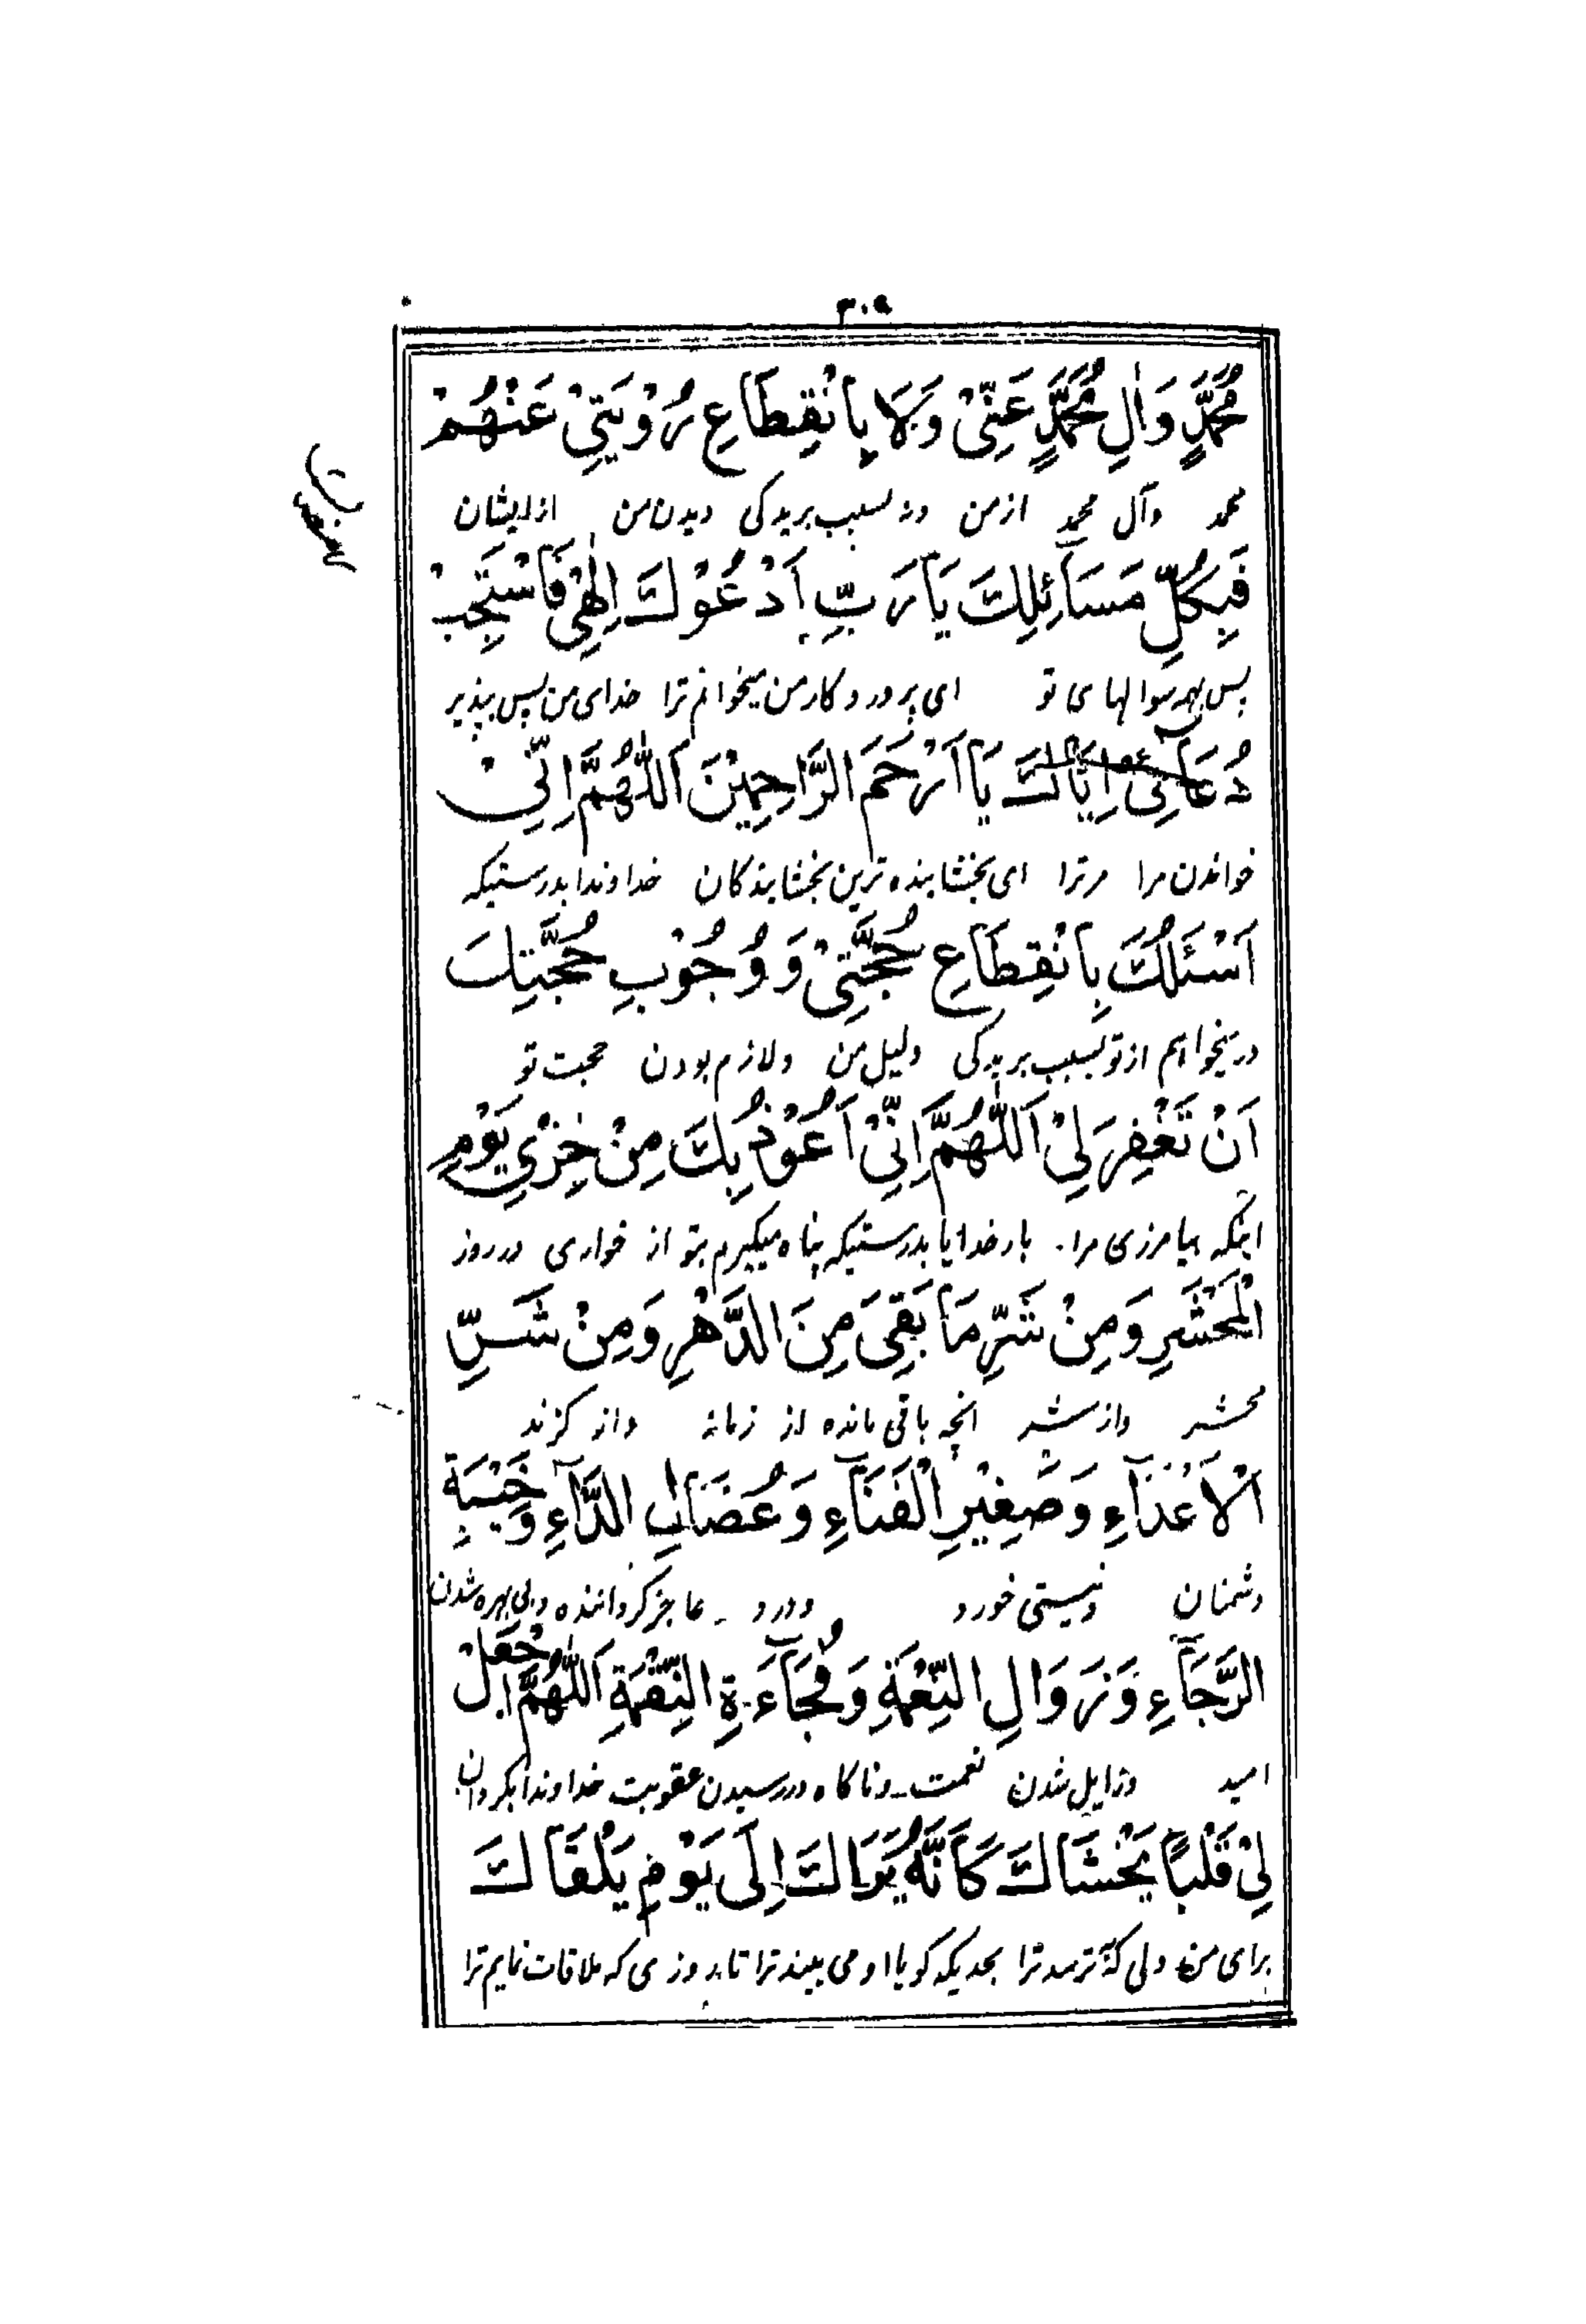 ٣٠٩
مُحَمَّدٍ وَاٰلِ مُحَمَّدٍ عَنِّىْ وَلَا بِانْقِطَاعِ رُؤْيَتِىْ عَنْهُمْ
محمد وآل محمد ازمن ونه بسبب بریدگی دیدن من ازایشان
فَبِكُلِّ مَسَآئِلِكَ يَا رَبِّ اَدْعُوْكَ اِلٰهِىْ فَاسْتَجِبْ
پس بهر سوالهای تو ای پروردکار من میخوانم ترا خدای من پس بپذیر
دُعَآئِىْ اِيَّاكَ يَا اَرْحَمَ الرَّاحِمِيْنَ اَللّٰهُمَّ اِنِّىْ
خواندن مرا مرترا ای بخشاینده ترین بخشایندکان خداوندا بدرستیکه
اَسْئَلُكَ بِانْقِطَاعِ حُجَّتِىْ وَوُجُوْبِ حُجَّتِكَ
درمیخواهم ازتو بسبب بریدکی دلیل من ولازم بودن حجت تو
اَنْ تَغْفِرَ لِىْ اَللّٰهُمَّ اِنِّىْ اَعُوْذُ بِكَ مِنْ خِزْىِ يَوْمِ
اینکه بیامرزی مرا۔ بار خدایا بدرستیکه پناه میکیرم بتو از خواری در روز
الْمَحْشَرِ وَمِنْ شَرِّ مَا بَقِىَ مِنَ الدَّهْرِ وَمِنْ شَرِّ
محشر واز شر انچه باقی مانده از زمانه واز کزند
الْاَعْدَآءِ وَصَغِيْرِ الْفَنَآءِ وَعُضَالِ الدَّآءِ وَخَيْبَةِ
دشمنان ونیستی خورد ودرد ۔ عاجز کرداننده وبی بهره شدن
الرَّجَآءِ وَزَوَالِ النِّعْمَةِ وَفُجَآءَةِ النِّقْمَةِ اَللّٰهُمَّ اجْعَلْ
امید وزایل شدن نعمت ۔ وناکاه در رسیدن عقوبت خداوندا بکردان
لِىْ قَلْبًا يَخْشَاكَ كَاَنَّهُ يَرَاكَ اِلَى يَوْمِ يَلْقَاكَ
برای من دلی که ترسد ترا بحدیکه کویا او می بیند ترا تا بروزی که ملاقات نمایم ترا